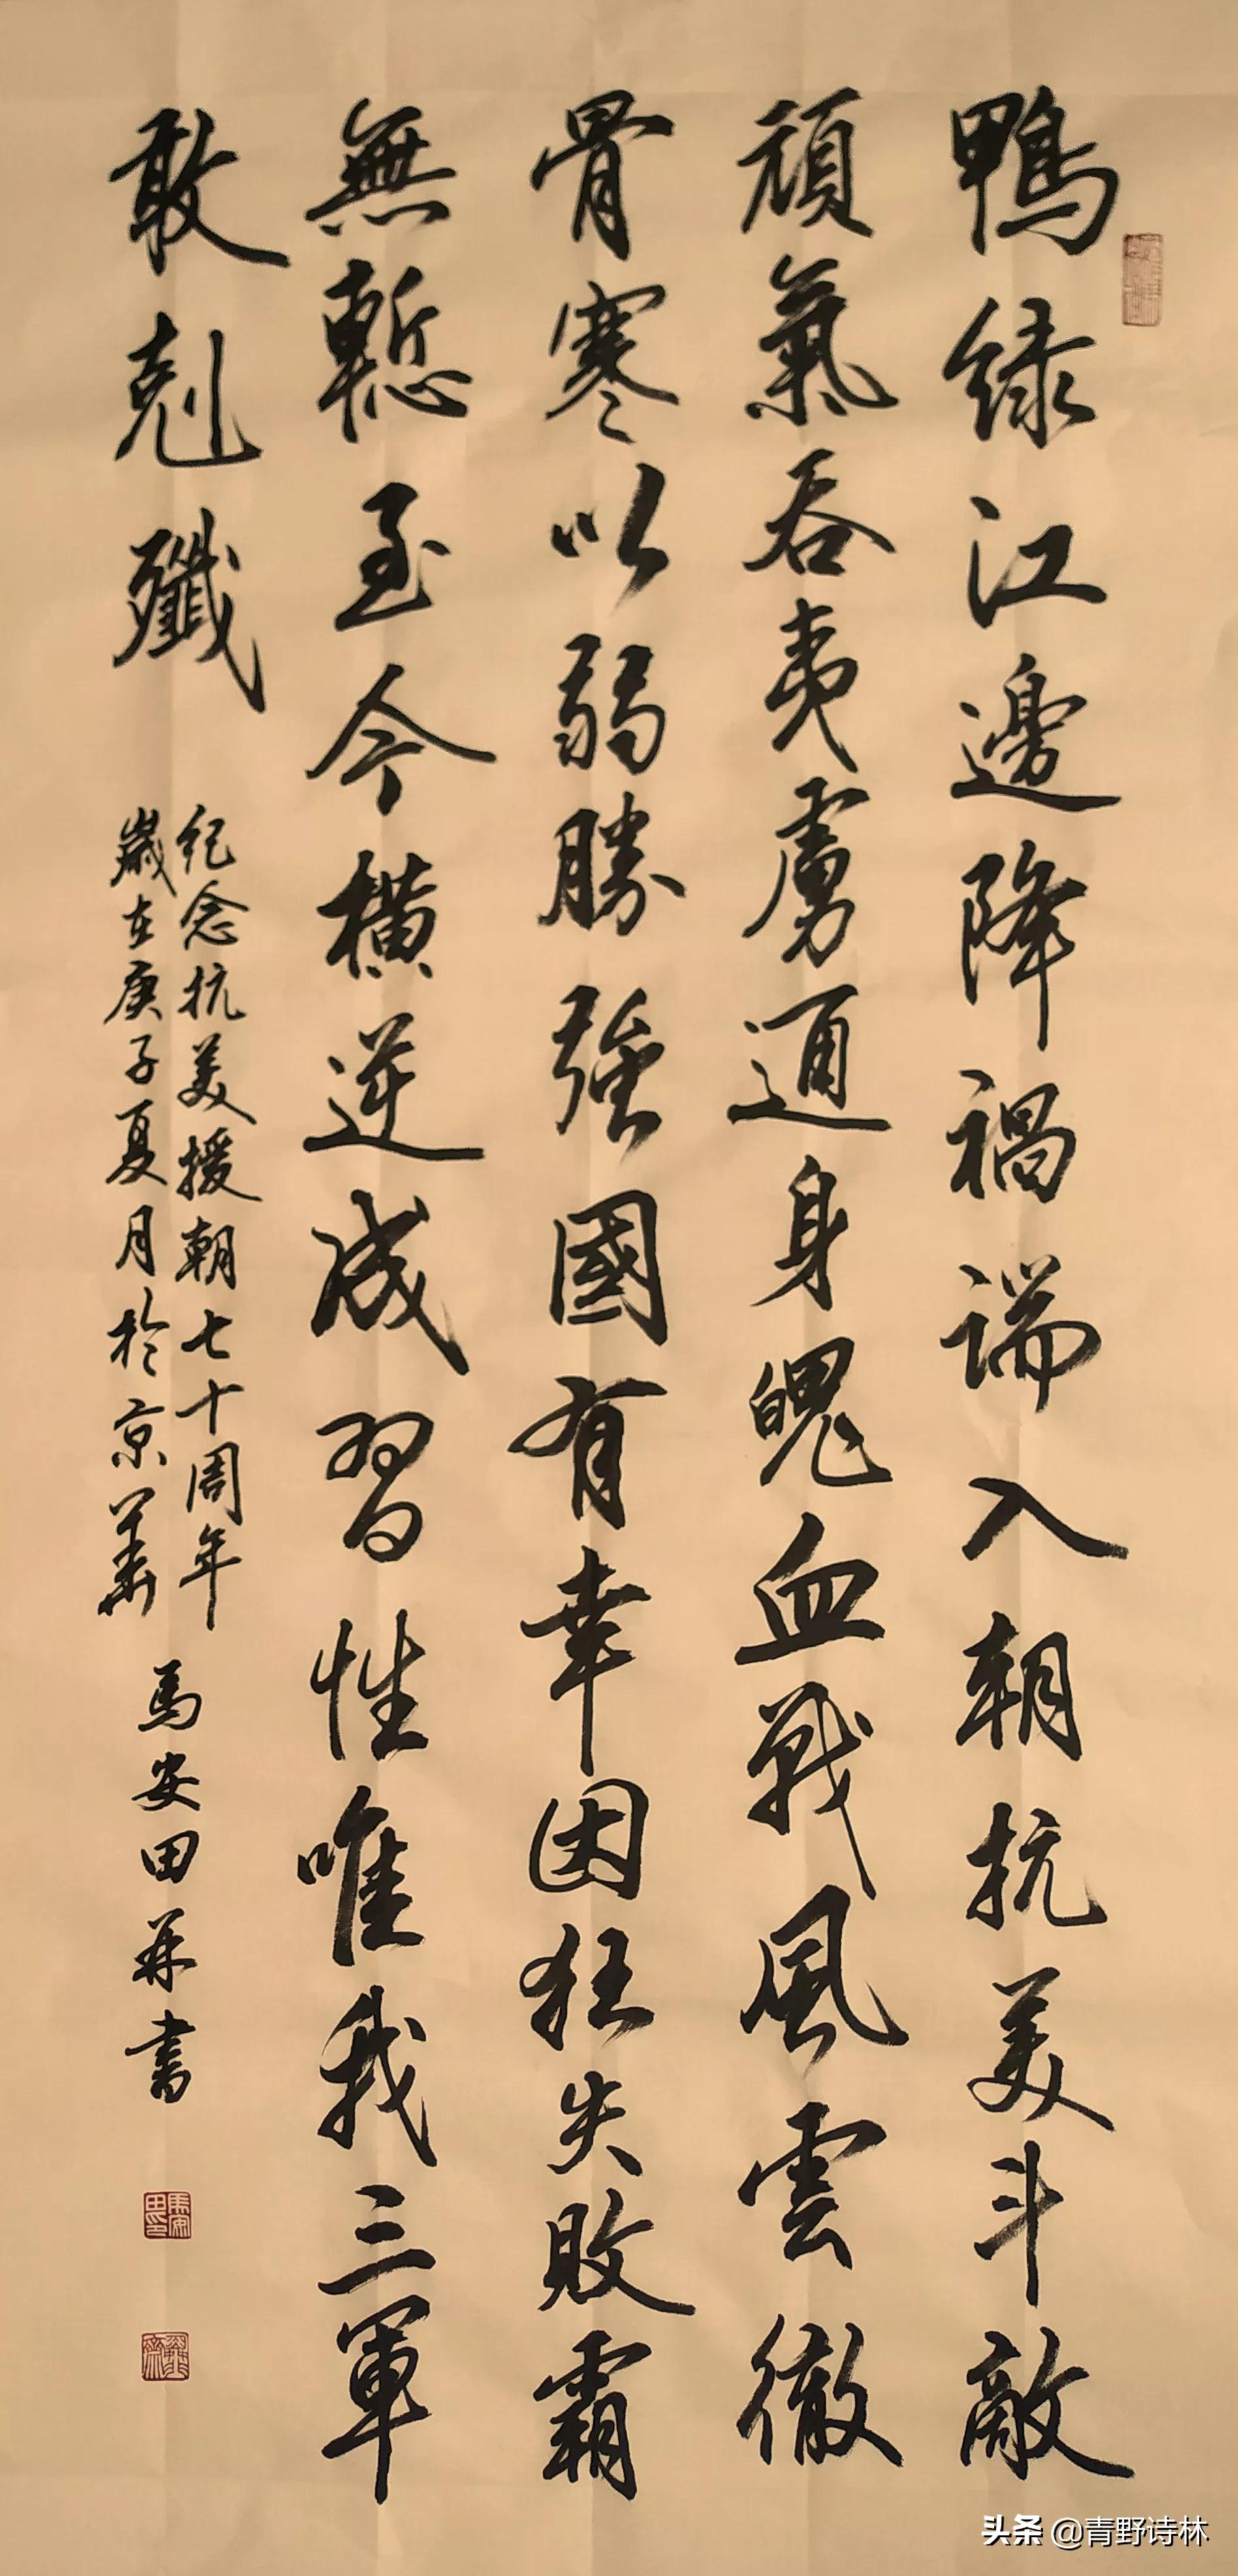 鴨绿江邊降禍端入朝抗美斗敵
頑氣吞夷虜通身魄血戰風雲徹
骨寒以弱勝强國有幸因狂失敗霸
無慙至今橫逆成習性唯我三軍
敢剋殲
纪念抗美援朝七十周年
歲在庚子夏月於京華
馬安田并書
馬安田印
头条 @青野诗林